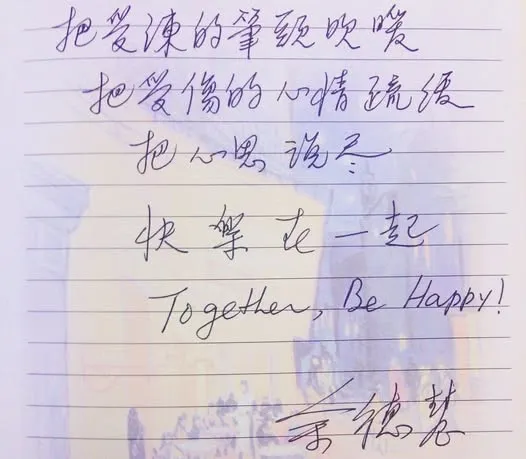 把受凍的筆頭吹暖
把受傷的心情疏緩
把心思說尽
快樂在一起
Together, Be Happy!
余德慧